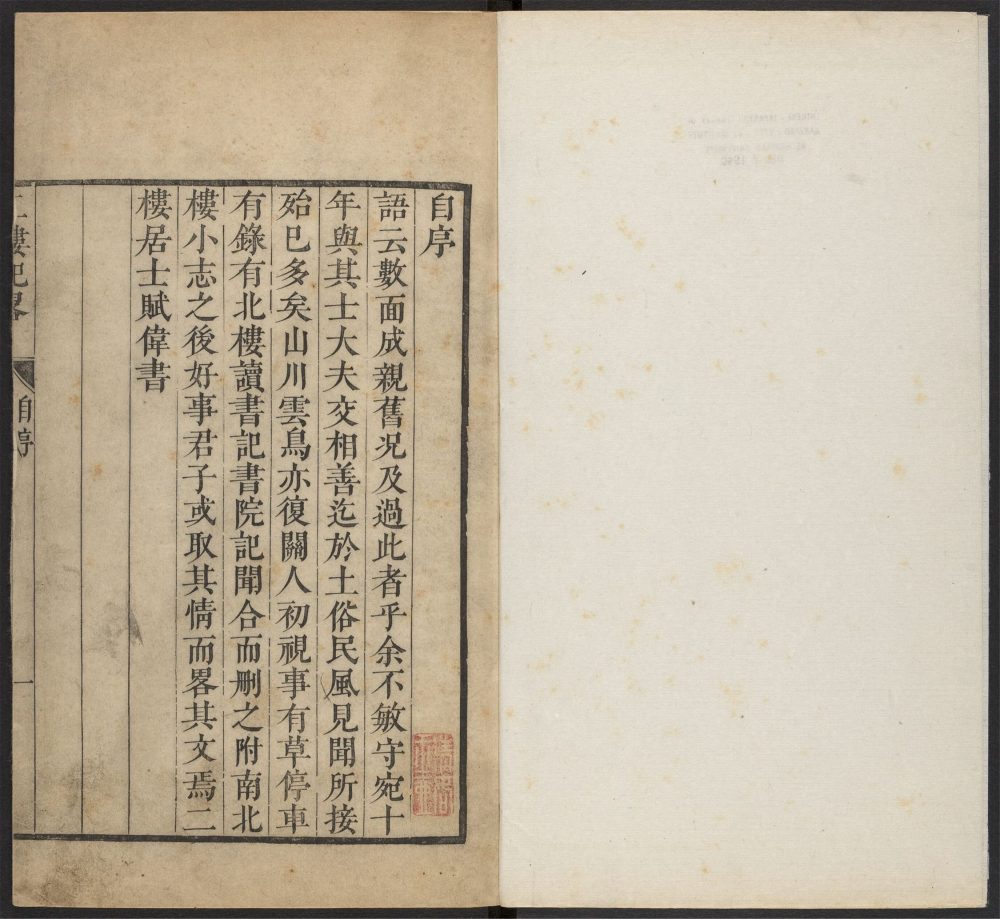 自序
語云數面成親舊况及過此者乎余不敏守宛十
年與其士大夫交相善迄於土俗民風見聞所接
殆已多矣山川雲鳥亦復關人初視事有草停車
有錄有北樓讀書記書院記聞合而刪之附南北
樓小志之後好事君子或取其情而畧其文焉二
樓居士賦偉書
二樓紀畧
自序
一